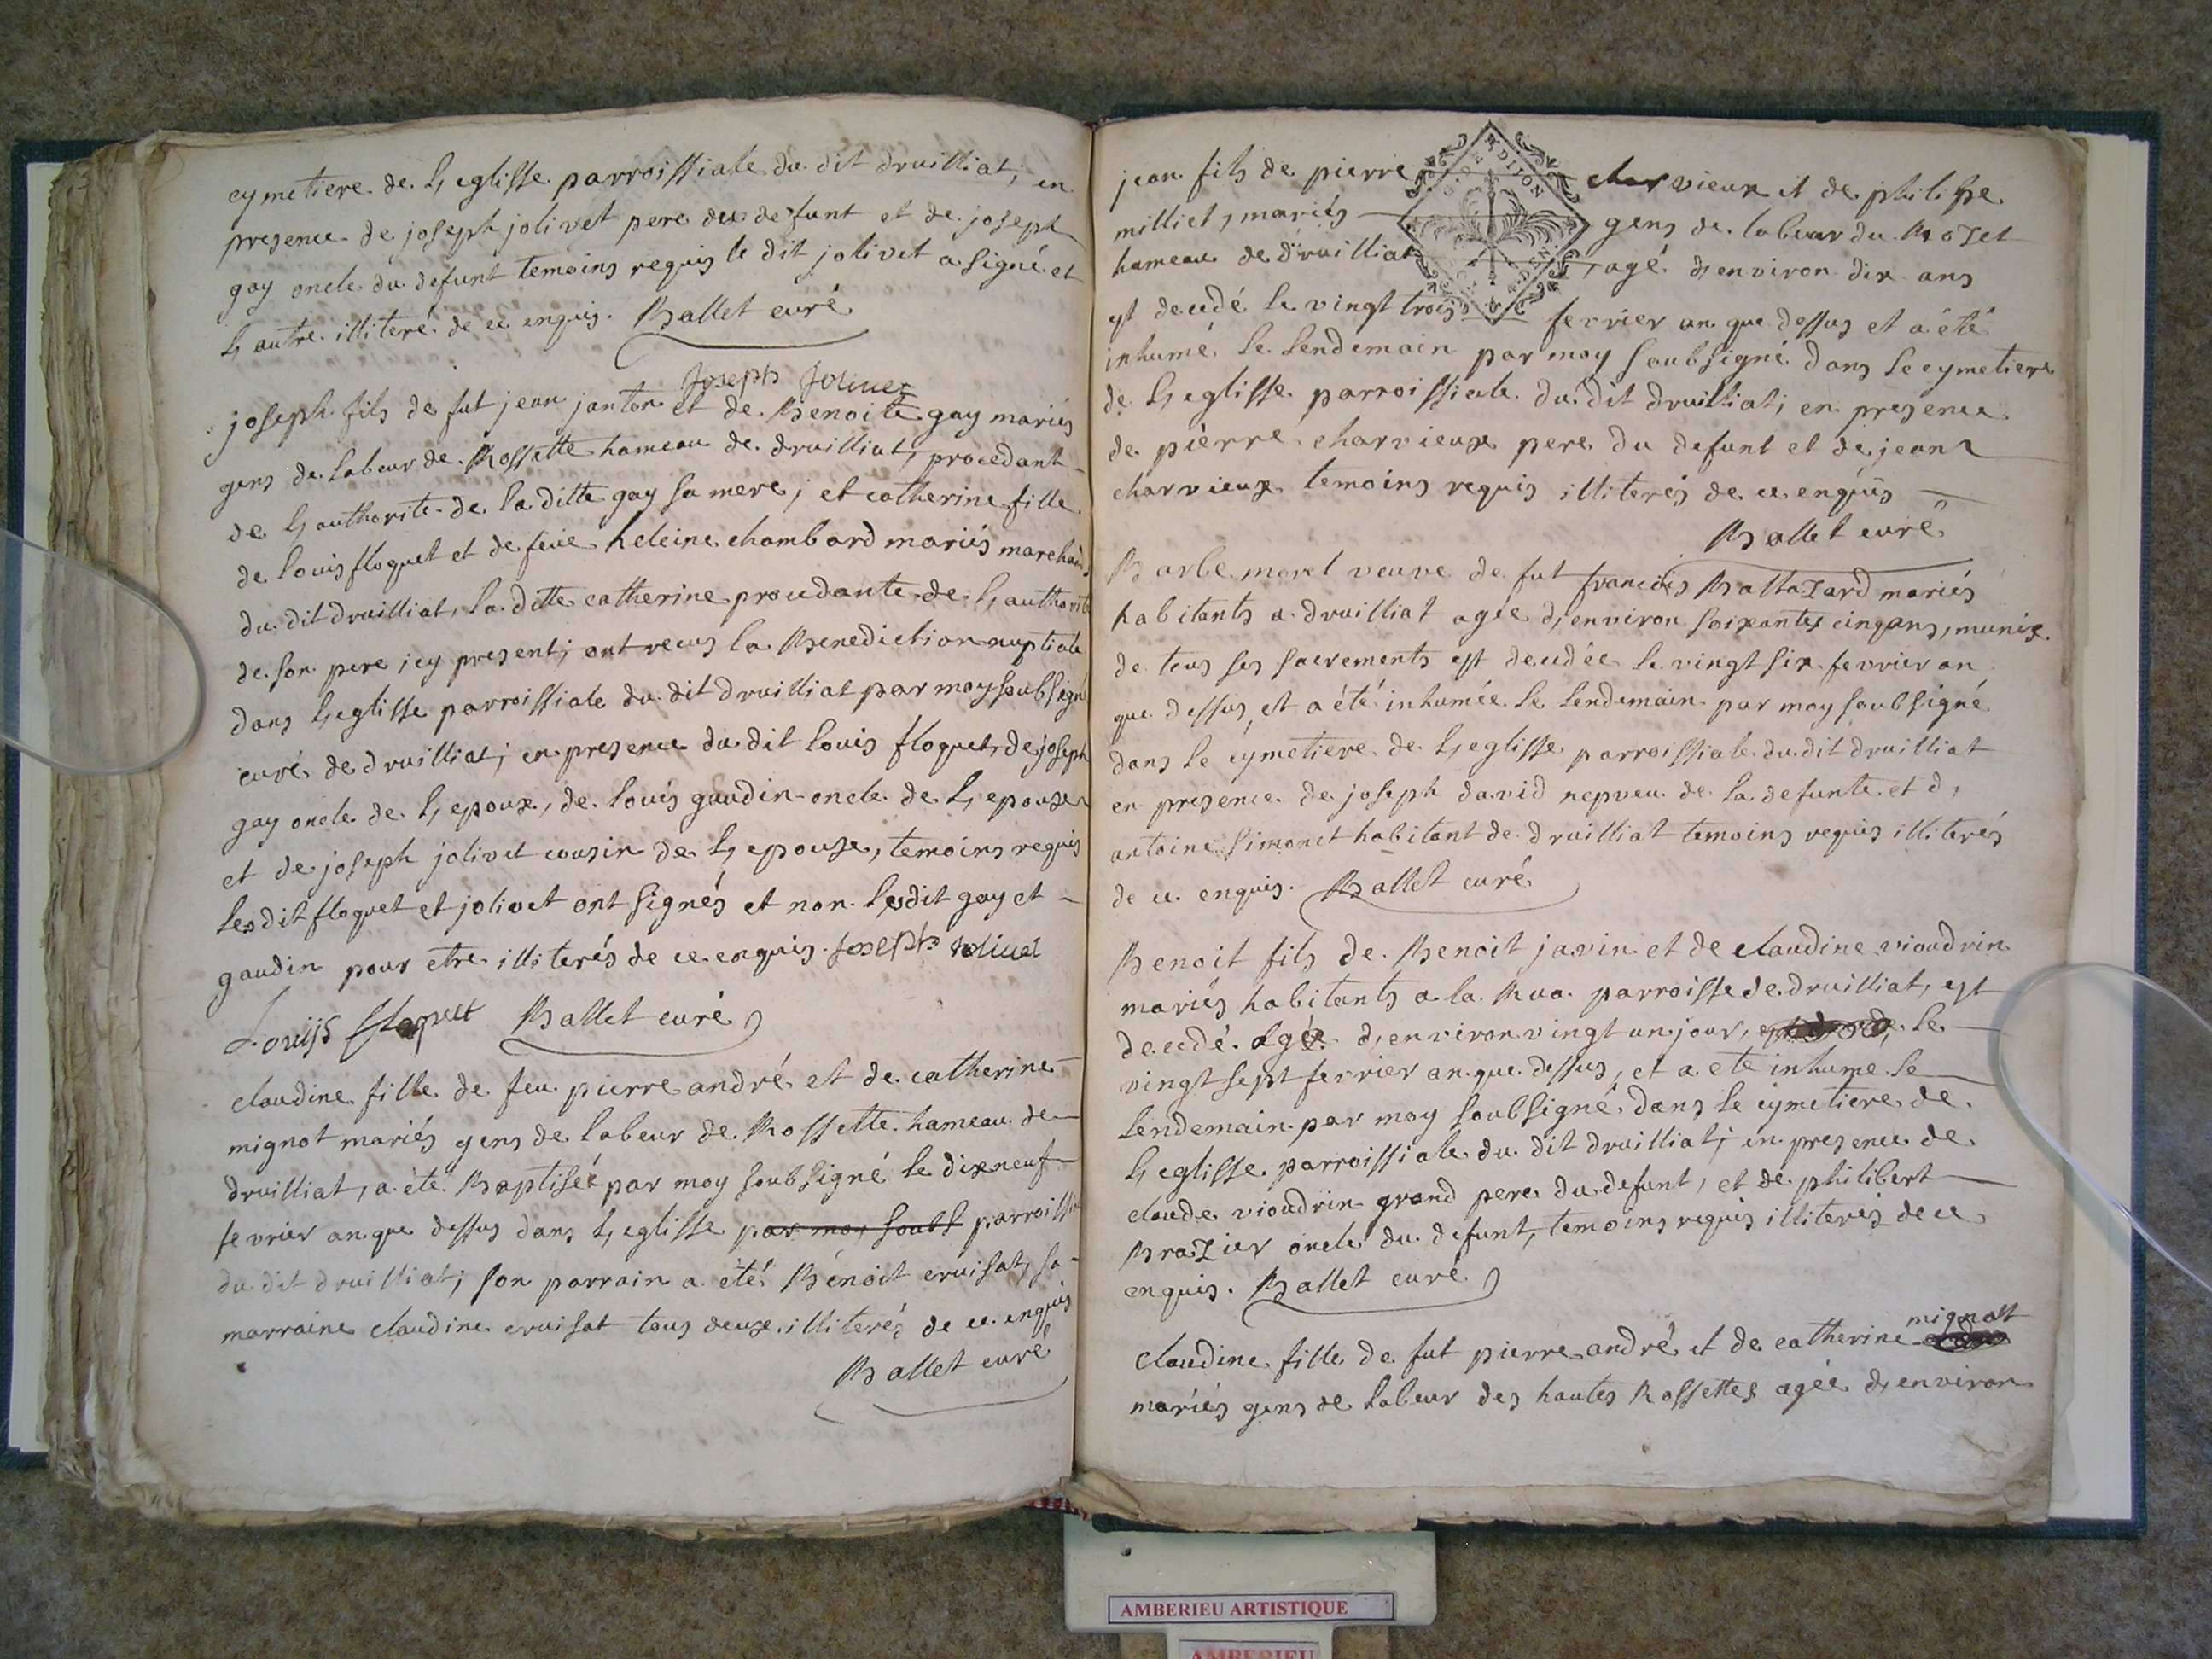 cymetiere de L, eglisse parroissiale du dit druilliat, en
presence de joseph jolivet pere du defunt et de joseph
gay oncle du defunt temoins requis le dit jolivet a signé et
L, autre illiteré de ce enquis. Ballet curé
Joseph Jolivet
joseph fils de fut jean janton et de Benoite gay mariés
gens de labeur de Rossette hameau de druilliat, procedant
de L, authorite de la ditte gay sa mere; et catherine fille
de Louis floquet et de feüe heleine chambard mariés marchands
du dit druilliat, la ditte catherine procedante de L, authorité
de son pere icy present; ont recus la Benediction nuptiale
dans L, eglisse parroissiale du dit druilliat par moy soubsigné
curé de druilliat; en presence du dit Louis floquet, de joseph
gay oncle de L, epoux, de Louis gaudin oncle de L, epouse
et de joseph jolivet cousin de L, epouse, temoins requis
Lesdit floquet et jolivet ont signés et non Lesdit gay et
gaudin pour etre illiterés de ce enquis. Joseph Jolivet
Louijs floquet Ballet curé
claudine fille de feu pierre andré et de catherine
mignot mariés gens de labeur de Rossette hameau de
druilliat, a été Baptisée par moy soubsigné le dixneuf
fevrier an que dessus dans L, eglisse par moy soubs parroissiale
du dit druilliat; son parrain a été Benoit cruisat, sa
marraine claudine cruisat tous deux illiterés de ce enquis
Ballet curé
jean fils de pierre charvieux et de philippe
milliet, mariés gens de labeur du Rozet
hameau de druilliat, agé d, environ dix ans
est decedé le vingt trois fevrier an que dessus et a été
inhumé le lendemain par moy soubsigné dans le cymetiere
de L, eglisse parroissiale du dit druilliat; en presence
de pierre charvieux pere du defunt et de jean
charvieux temoins requis illiterés de ce enquis
Ballet curé
Barbe morel veuve de fut francois Baltazard mariés
habitants a druilliat agée d, environ soixantes cinq ans, munie
de tous ses sacrements est decedée le vingt six fevrier an
que dessus, et a été inhumée le lendemain par moy soubsigné
dans le cymetiere de L, eglisse parroissiale du dit druilliat
en presence de joseph david nepveu de la defunte et d,
antoine simonet habitant de druilliat temoins requis illiterés
de ce enquis. Ballet curé
Benoit fils de Benoit javin et de claudine vioudrin
mariés habitants a la Rua parroisse de druilliat, est
decedé agé d, environ vingt un jour, le
vingt sept fevrier an que dessus, et a eté inhume le
lendemain par moy soubsigné dans le cymetiere de
L, eglisse parroissiale du dit druilliat; en presence de
claude vioudrin grand pere du defunt, et de philibert
Brazier oncle du defunt, temoins requis illiterés de ce
enquis. Ballet curé
mignot
claudine fille de fut pierre andré et de catherine
mariés gens de labeur des hautes Rossettes agée d, environ
AMBERIEU ARTISTIQUE
AMBERIEU